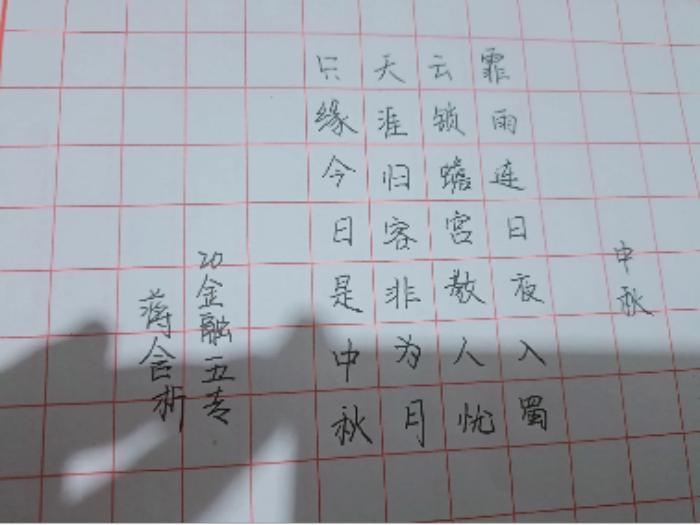 中秋
霏雨连日夜入蜀
云锁蟾宫教人忧
天涯归客非为月
只缘今日是中秋
20金融五专
蒋舍析